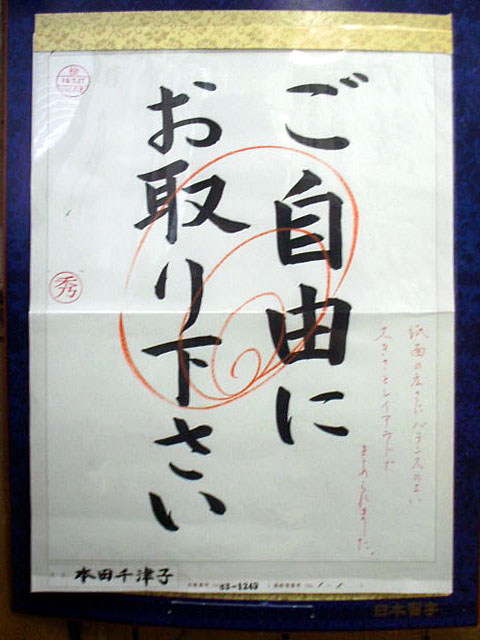 ご自由に
お取り下さい
紙面の広さにバランスのよい
大きさとレイアウトが
まとめられました。
秀
本田千津子
63-1249
日本習字